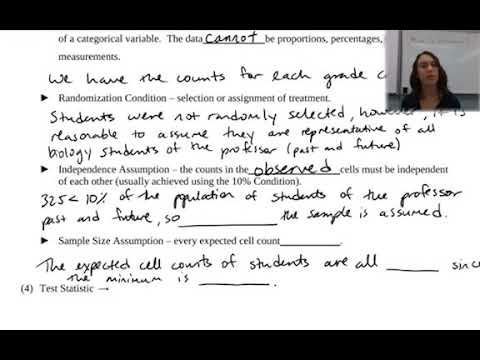 of a categorical variable. The data cannot be proportions, percentages,
measurements.
We have the counts for each grade c
► Randomization Condition – selection or assignment of treatment.
Students were not randomly selected, however, it is
reasonable to assume they are representative of all
biology students of the professor (past and future)
► Independence Assumption – the counts in the observed cells must be independent
of each other (usually achieved using the 10% Condition).
325 < 10% of the population of students of the professor
past and future, so ______ the sample is assumed.
► Sample Size Assumption – every expected cell count______
The expected cell counts of students are all ______ sinc
the minimum is ______.
(4) Test Statistic →